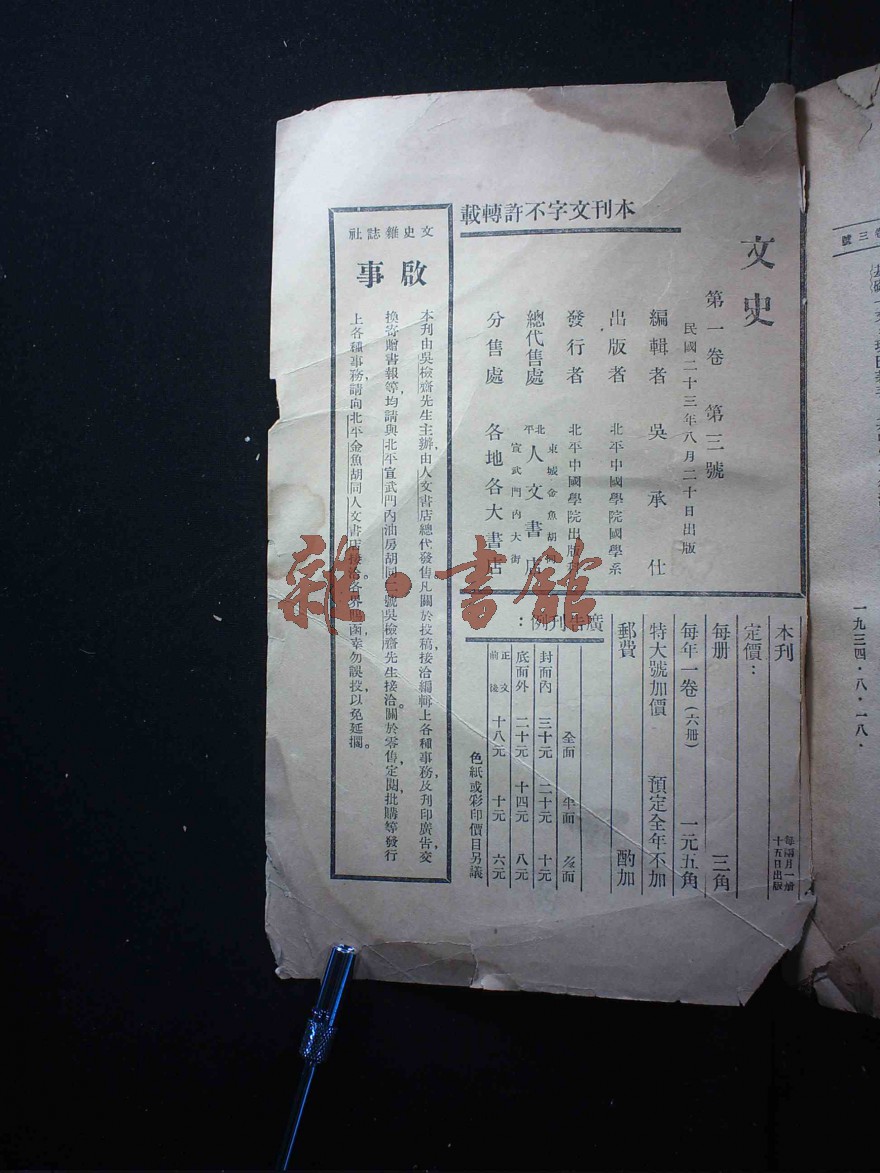 文史
第一卷 第三號
民國二十三年八月二十日出版
編輯者 吳承仕
出版者 北平中國學院國學系
發行者 北平中國學院出版
總代售處 北平 東城金魚胡 宣武門內大街 人文書店
分售處 各地各大書店
本刊文字不許轉載
本刊
定價： 每隔月一冊 十五日出版
每册 三角
每年一卷（六册） 一元五角
特大號加價 預定全年不加
郵費 酌加
廣告刊例：
全面 半面
封面內 三十元 二十元 十元
底面外 二十元 十四元 八元
正文前後 十八元 十元 六元
色紙或彩印價目另議
文史雜誌社
啟事
本刊由吳檢齋先生主辦，由人文書店總代發售凡關於投稿，接洽編輯上各種事務，及刋印廣告，交
換寄贈書報等，均請與北平宣武門內油房胡同一號吳檢齋先生接洽。關於零售，定閱，批購等發行
上各種事務，請向北平金魚胡同人文書店接洽。各界賜函，幸勿誤投，以免延擱。
三號
一九三四・八・一八・
雜・書館